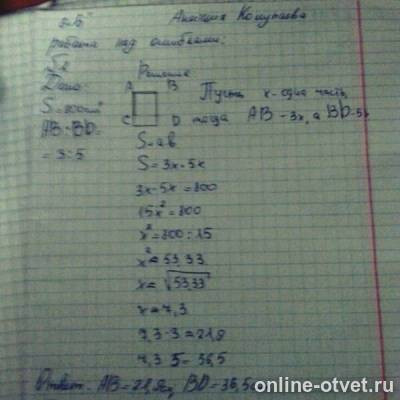 Анастасия
работа над ошибками:
Дано: Решение
A B
Пусть x - одна часть,
S=800см²
C D тогда AB - 3x, а BD - 5x
AB:BD=
= 3:5
S=ab
S=3x·5x
3x·5x=800
15x²=800
x²=800:15
x²=53,33
x=√53,33
x=7,3
7,3·3=21,9
7,3·5=36,5
Ответ: AB=21,9; BD=36,5
online-otvet.ru